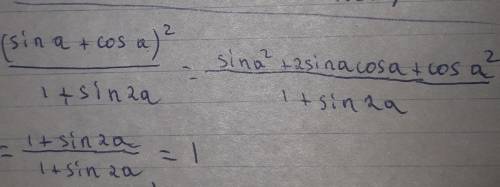 (sin a + cos a)² / 1 + sin 2a = sin a² + 2 sin a cos a + cos a² / 1 + sin 2a
= 1 + sin 2a / 1 + sin 2a = 1